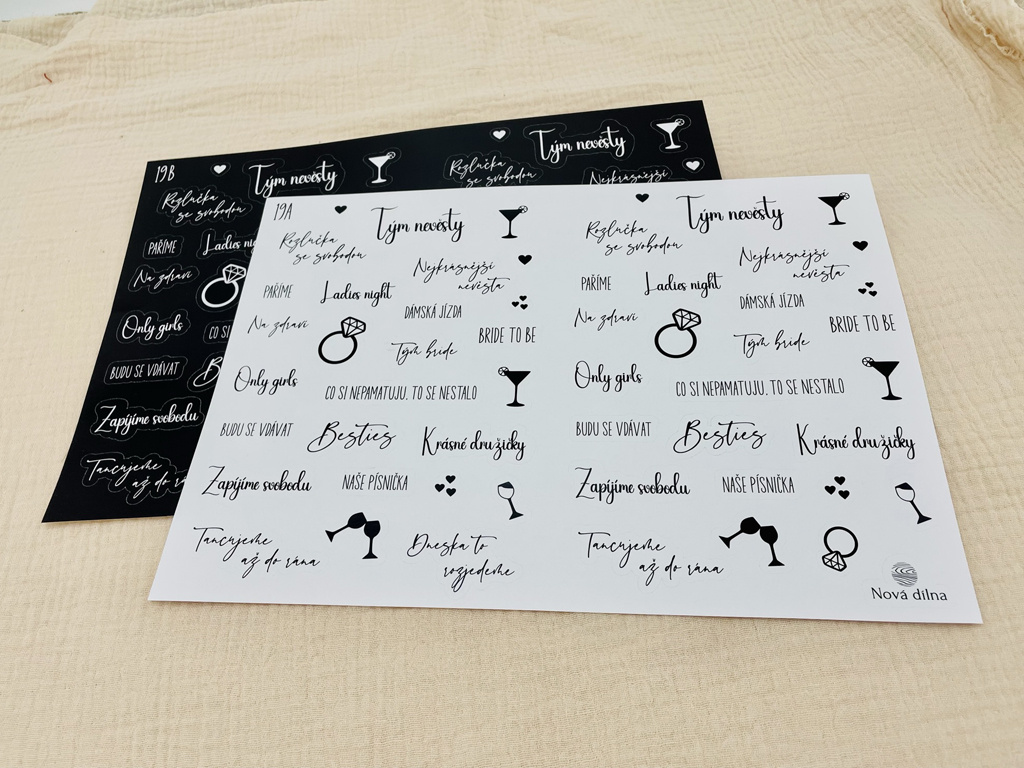 19B
Tým nevěsty
Tým nevěsty
Rozlučka
se svobodou
Rozlučka
se svobodou
Nejkrásnější
PAŘÍME
Ladies
Na zdraví
Only girls
CO SI
BUDU SE VDÁVAT
Zapíjíme svobodu
Tancujeme
až do
19A
Tým nevěsty
Tým nevěsty
Rozlučka
se svobodou
Rozlučka
se svobodou
Nejkrásnější
nevěsta
Nejkrásnější
nevěsta
PAŘÍME
Ladies night
PAŘÍME
Ladies night
DÁMSKÁ JÍZDA
DÁMSKÁ JÍZDA
Na zdraví
BRIDE TO BE
Na zdraví
BRIDE TO BE
Tým bride
Tým bride
Only girls
CO SI NEPAMATUJU, TO SE NESTALO
Only girls
CO SI NEPAMATUJU, TO SE NESTALO
BUDU SE VDÁVAT
Besties
Krásné družičky
BUDU SE VDÁVAT
Besties
Krásné družičky
Zapíjíme svobodu
NAŠE PÍSNIČKA
Zapíjíme svobodu
NAŠE PÍSNIČKA
Tancujeme
až do rána
Dneska to
rozjedeme
Tancujeme
až do rána
Nová dílna